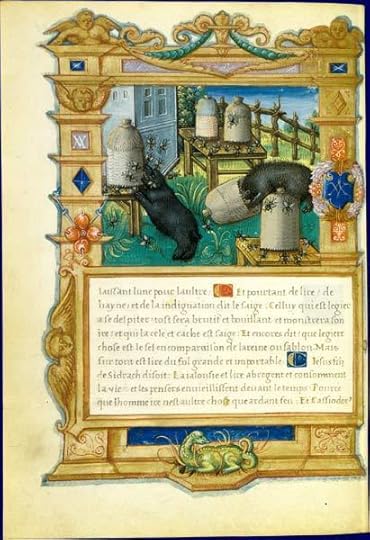 laissant lune pour laultre: Et pourtant de lire / de
hayne / et de la indignation dit le saige: Celluy qui est legier
a se despiter: tost sera bruit et bouillant et monstrera son
ire: et qui la cele et cache est saige: Et encores dit: que legiere
chose est le sel en comparaison de lareine ou sablon. Mais
sur tout est lire du fol grande et importable. Iesus filz
de Sidrach disoit: La ialousie et lire abregent et consomment
la vie: et les pensers envieillissent devant le temps: Pource
que lhomme ire nest aultre chose que ardant feu: Et Cassiodore